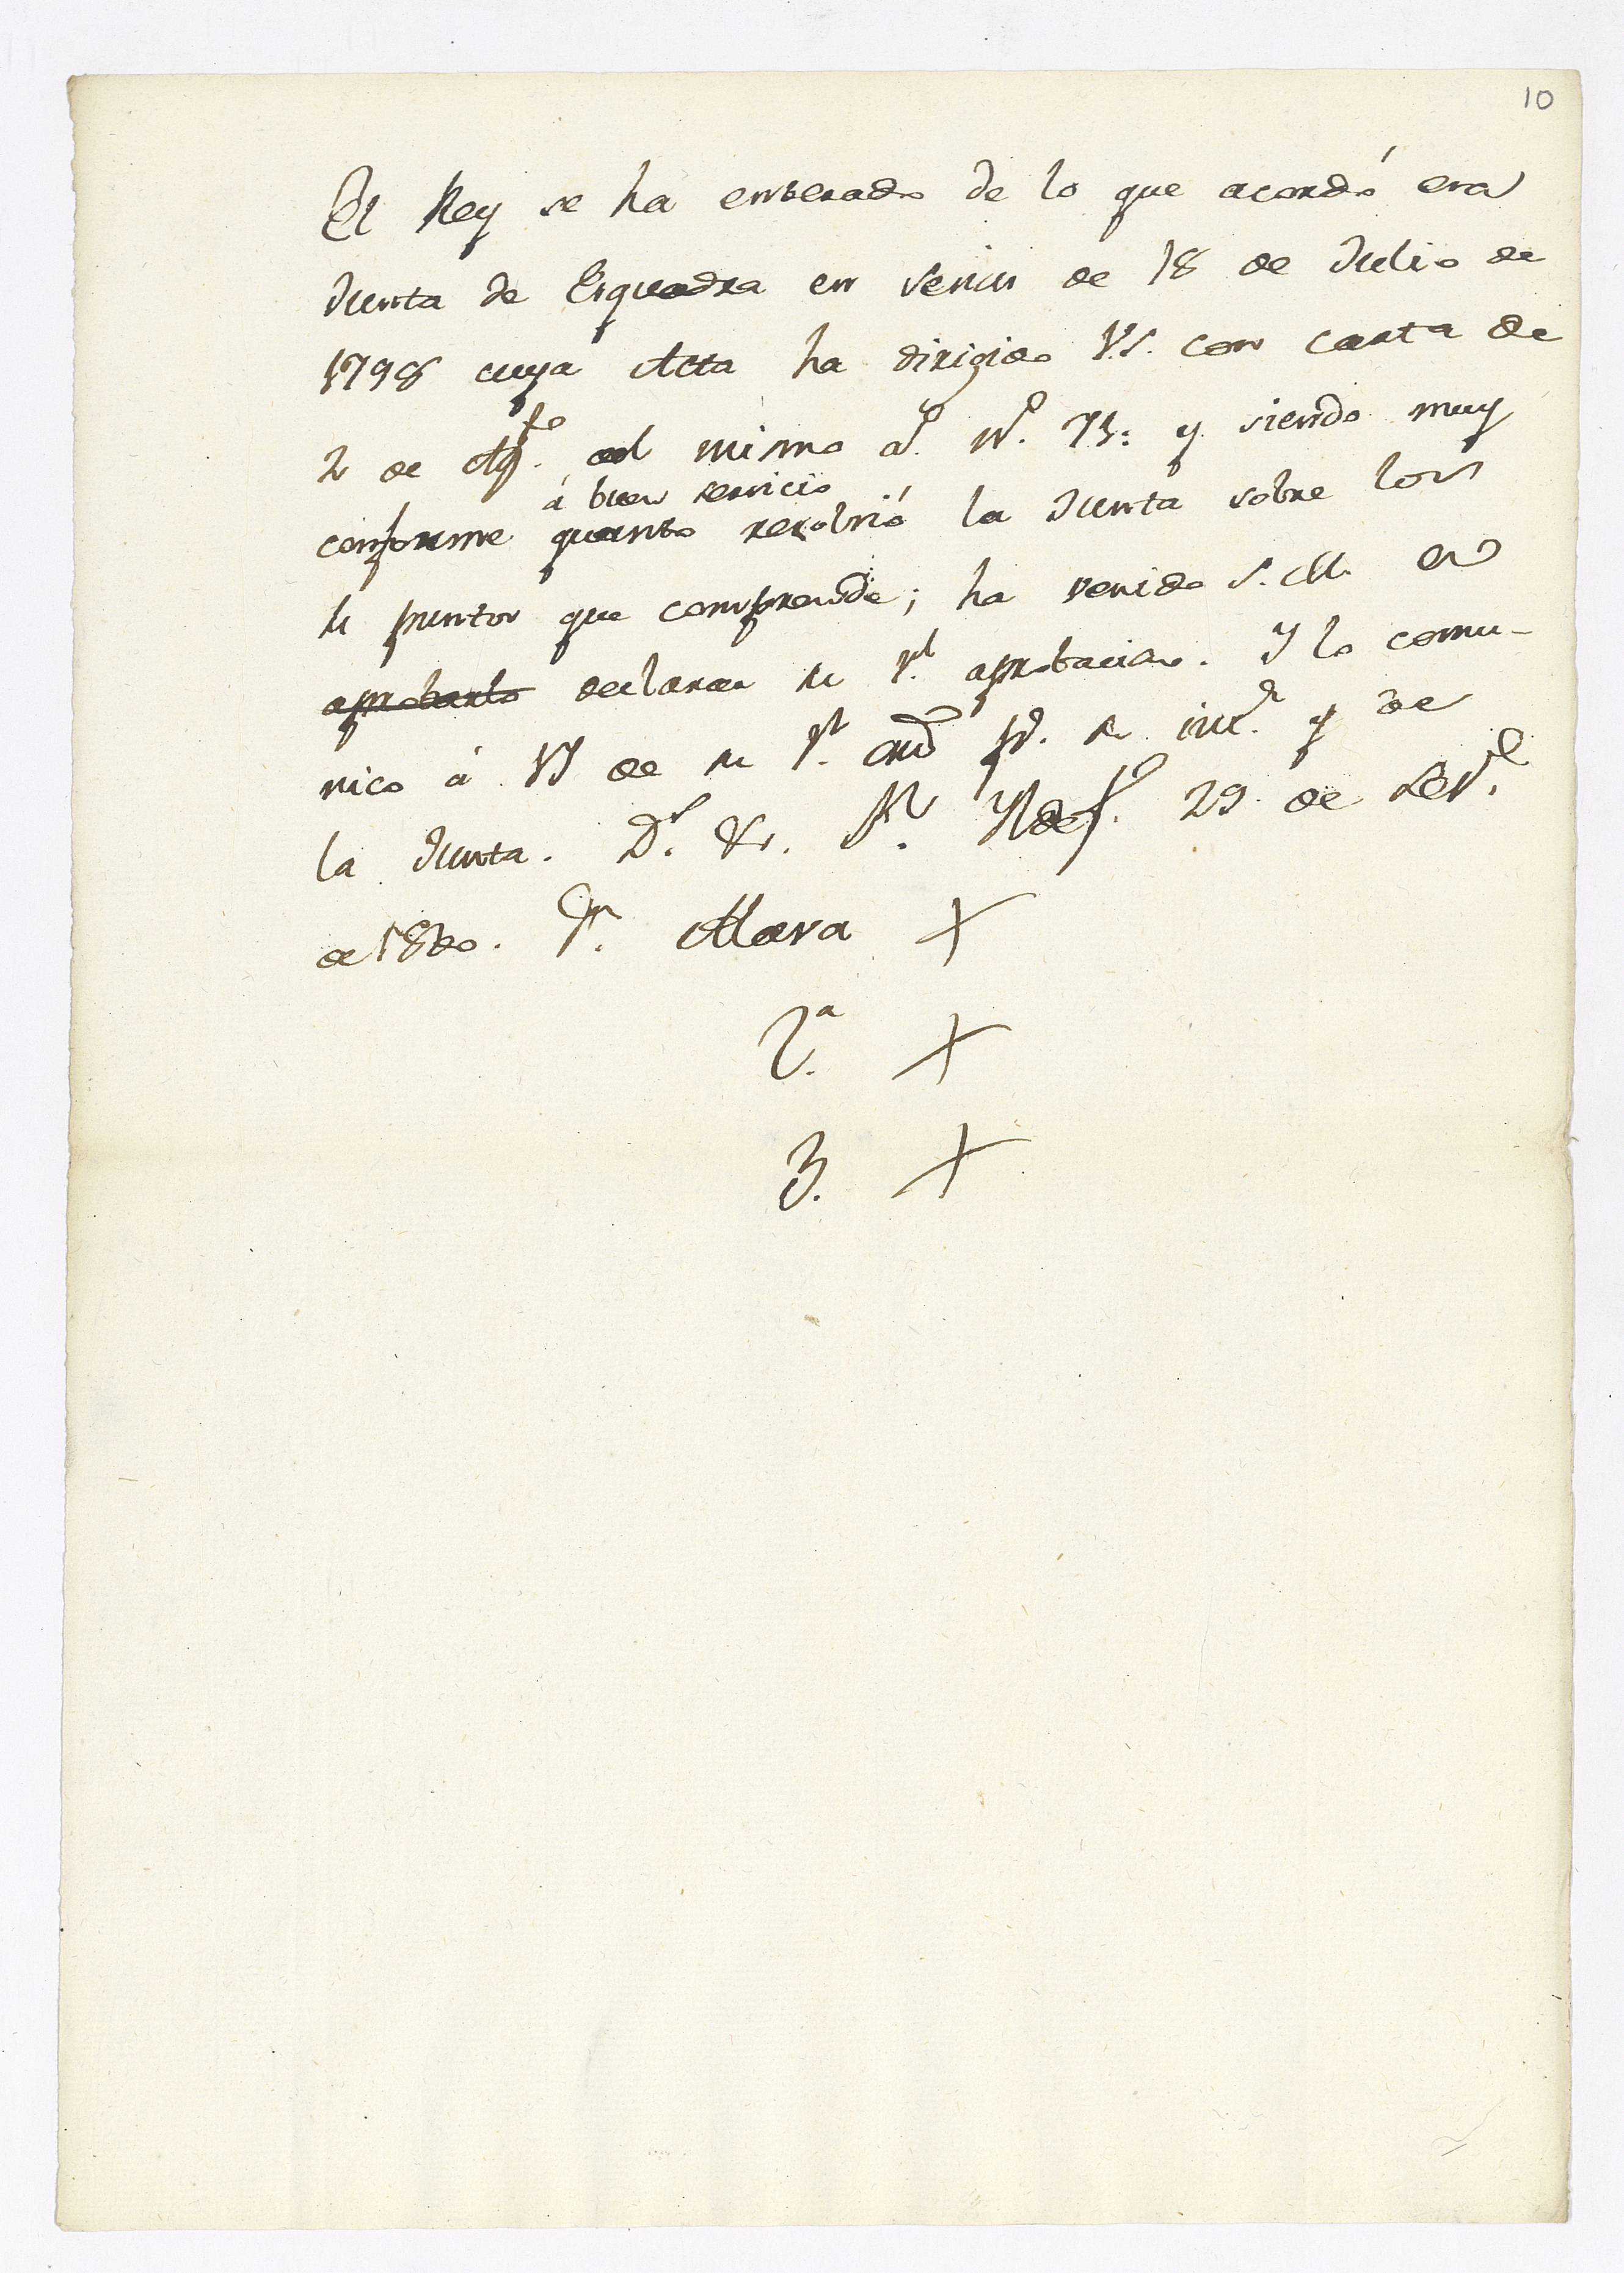 10
El Rey se ha enterado de lo que acordó esa
Junta de Esquadra en sesion de 18 de Julio de
1798 cuya Acta ha dirigido V.S. con carta de
2 de Ag.to del mismo a.o n.o 73: y siendo muy
á buen servicio
conforme quanto resolvió la Junta sobre los
puntos que comprende; ha venido S. M. en
aprobarlo declarar su r.l aprobacion. Y lo comu-
nico á VS de su r.l ord.n p.a su int.a y de
la Junta. D.s &c. S.n Yldef.o 29 de Sep.e
de 1800. S.r Alava +
2.a +
3. +